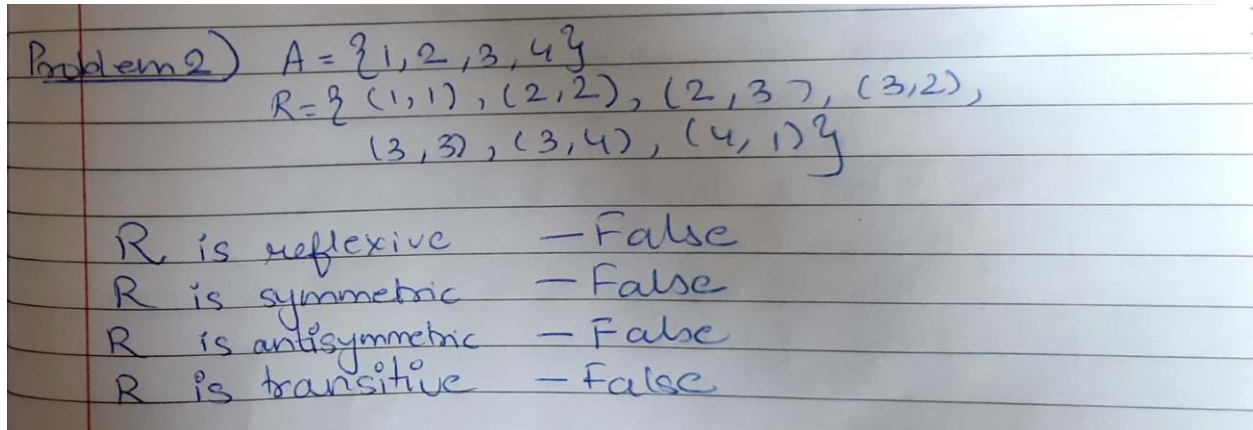 Problem 2) A = {1, 2, 3, 4}
R = { (1,1), (2,2), (2,3), (3,2),
(3,3), (3,4), (4,1)}
R is reflexive – False
R is symmetric – False
R is antisymmetric – False
R is transitive – False